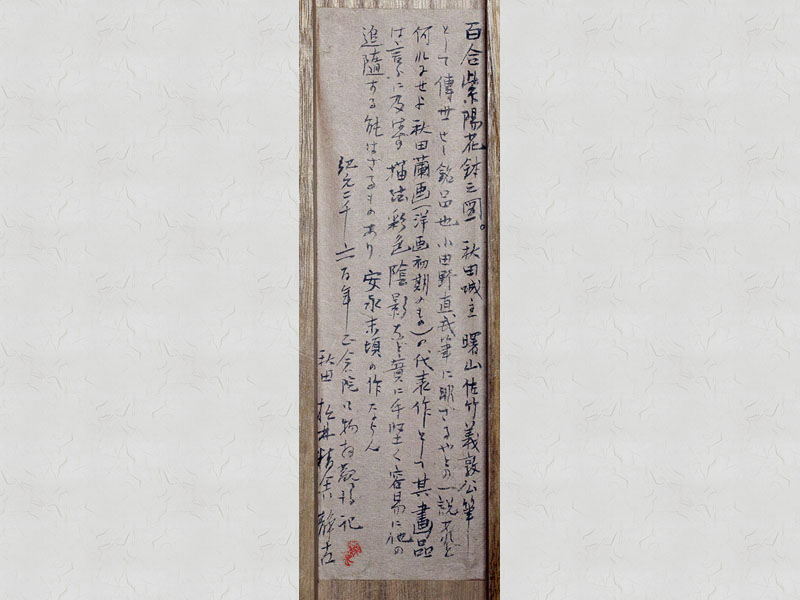 百合紫陽花鉢之図。秋田城主 曙山佐竹義敦公筆
として傳世せし銘品也 小田野直武筆に非ざるやとの一説あれど
何れにせよ秋田蘭画(洋画初期のもの)の代表作として其畫品
は言ふに及ばず描法彩色陰影など實に手堅く容易に他の
追隨する能はざるものあり 安永末頃の作ならん
紀元二千六百年 正倉院御物拝観 記
秋田 松井精舎 静古